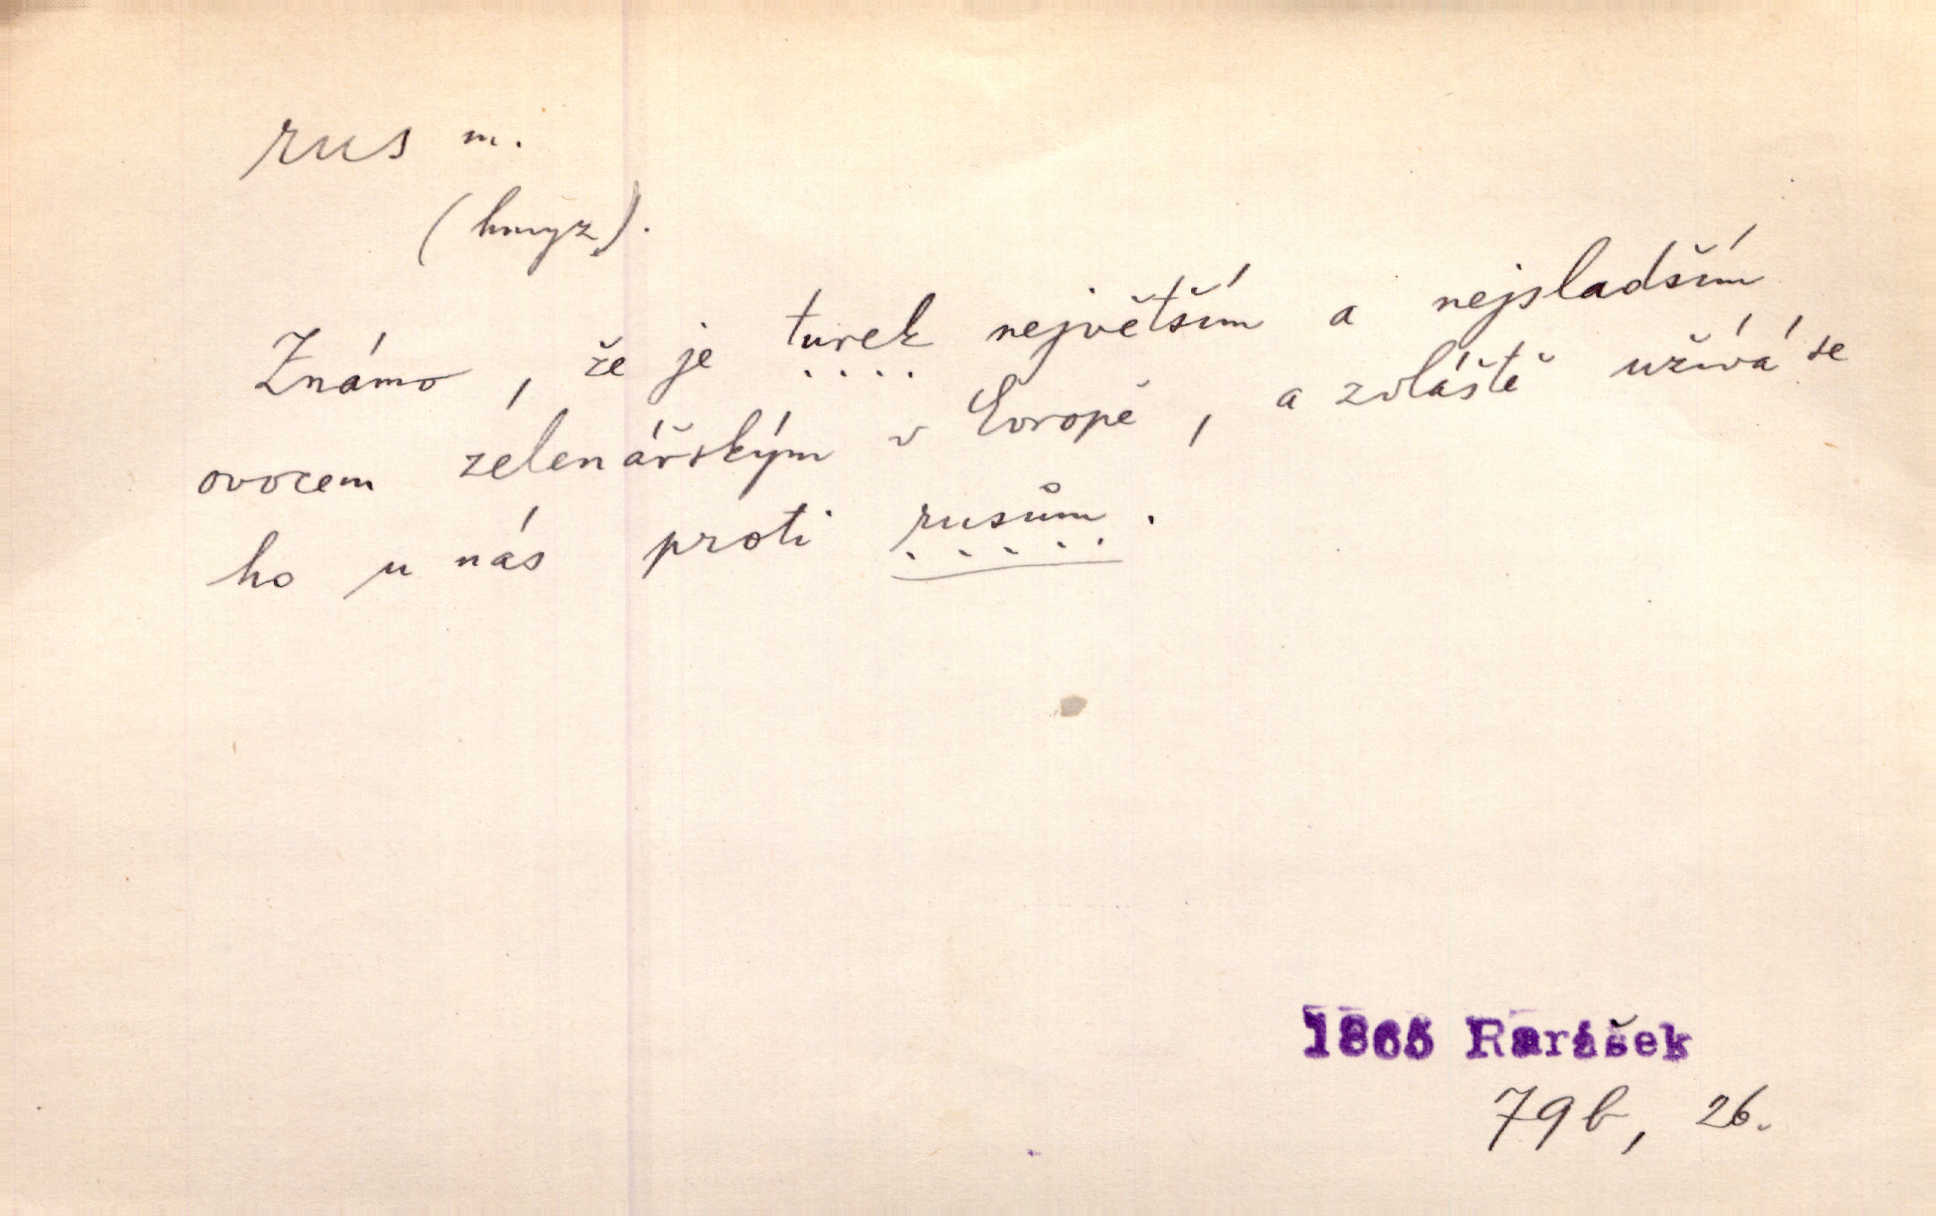 rus m.
(hmyz).
Známo, že je turek největším a nejsladším
ovocem zelenářským v Evropě, a zvláště užívá se
ho u nás proti rusům.
1865 Rarášek
79b, 26.